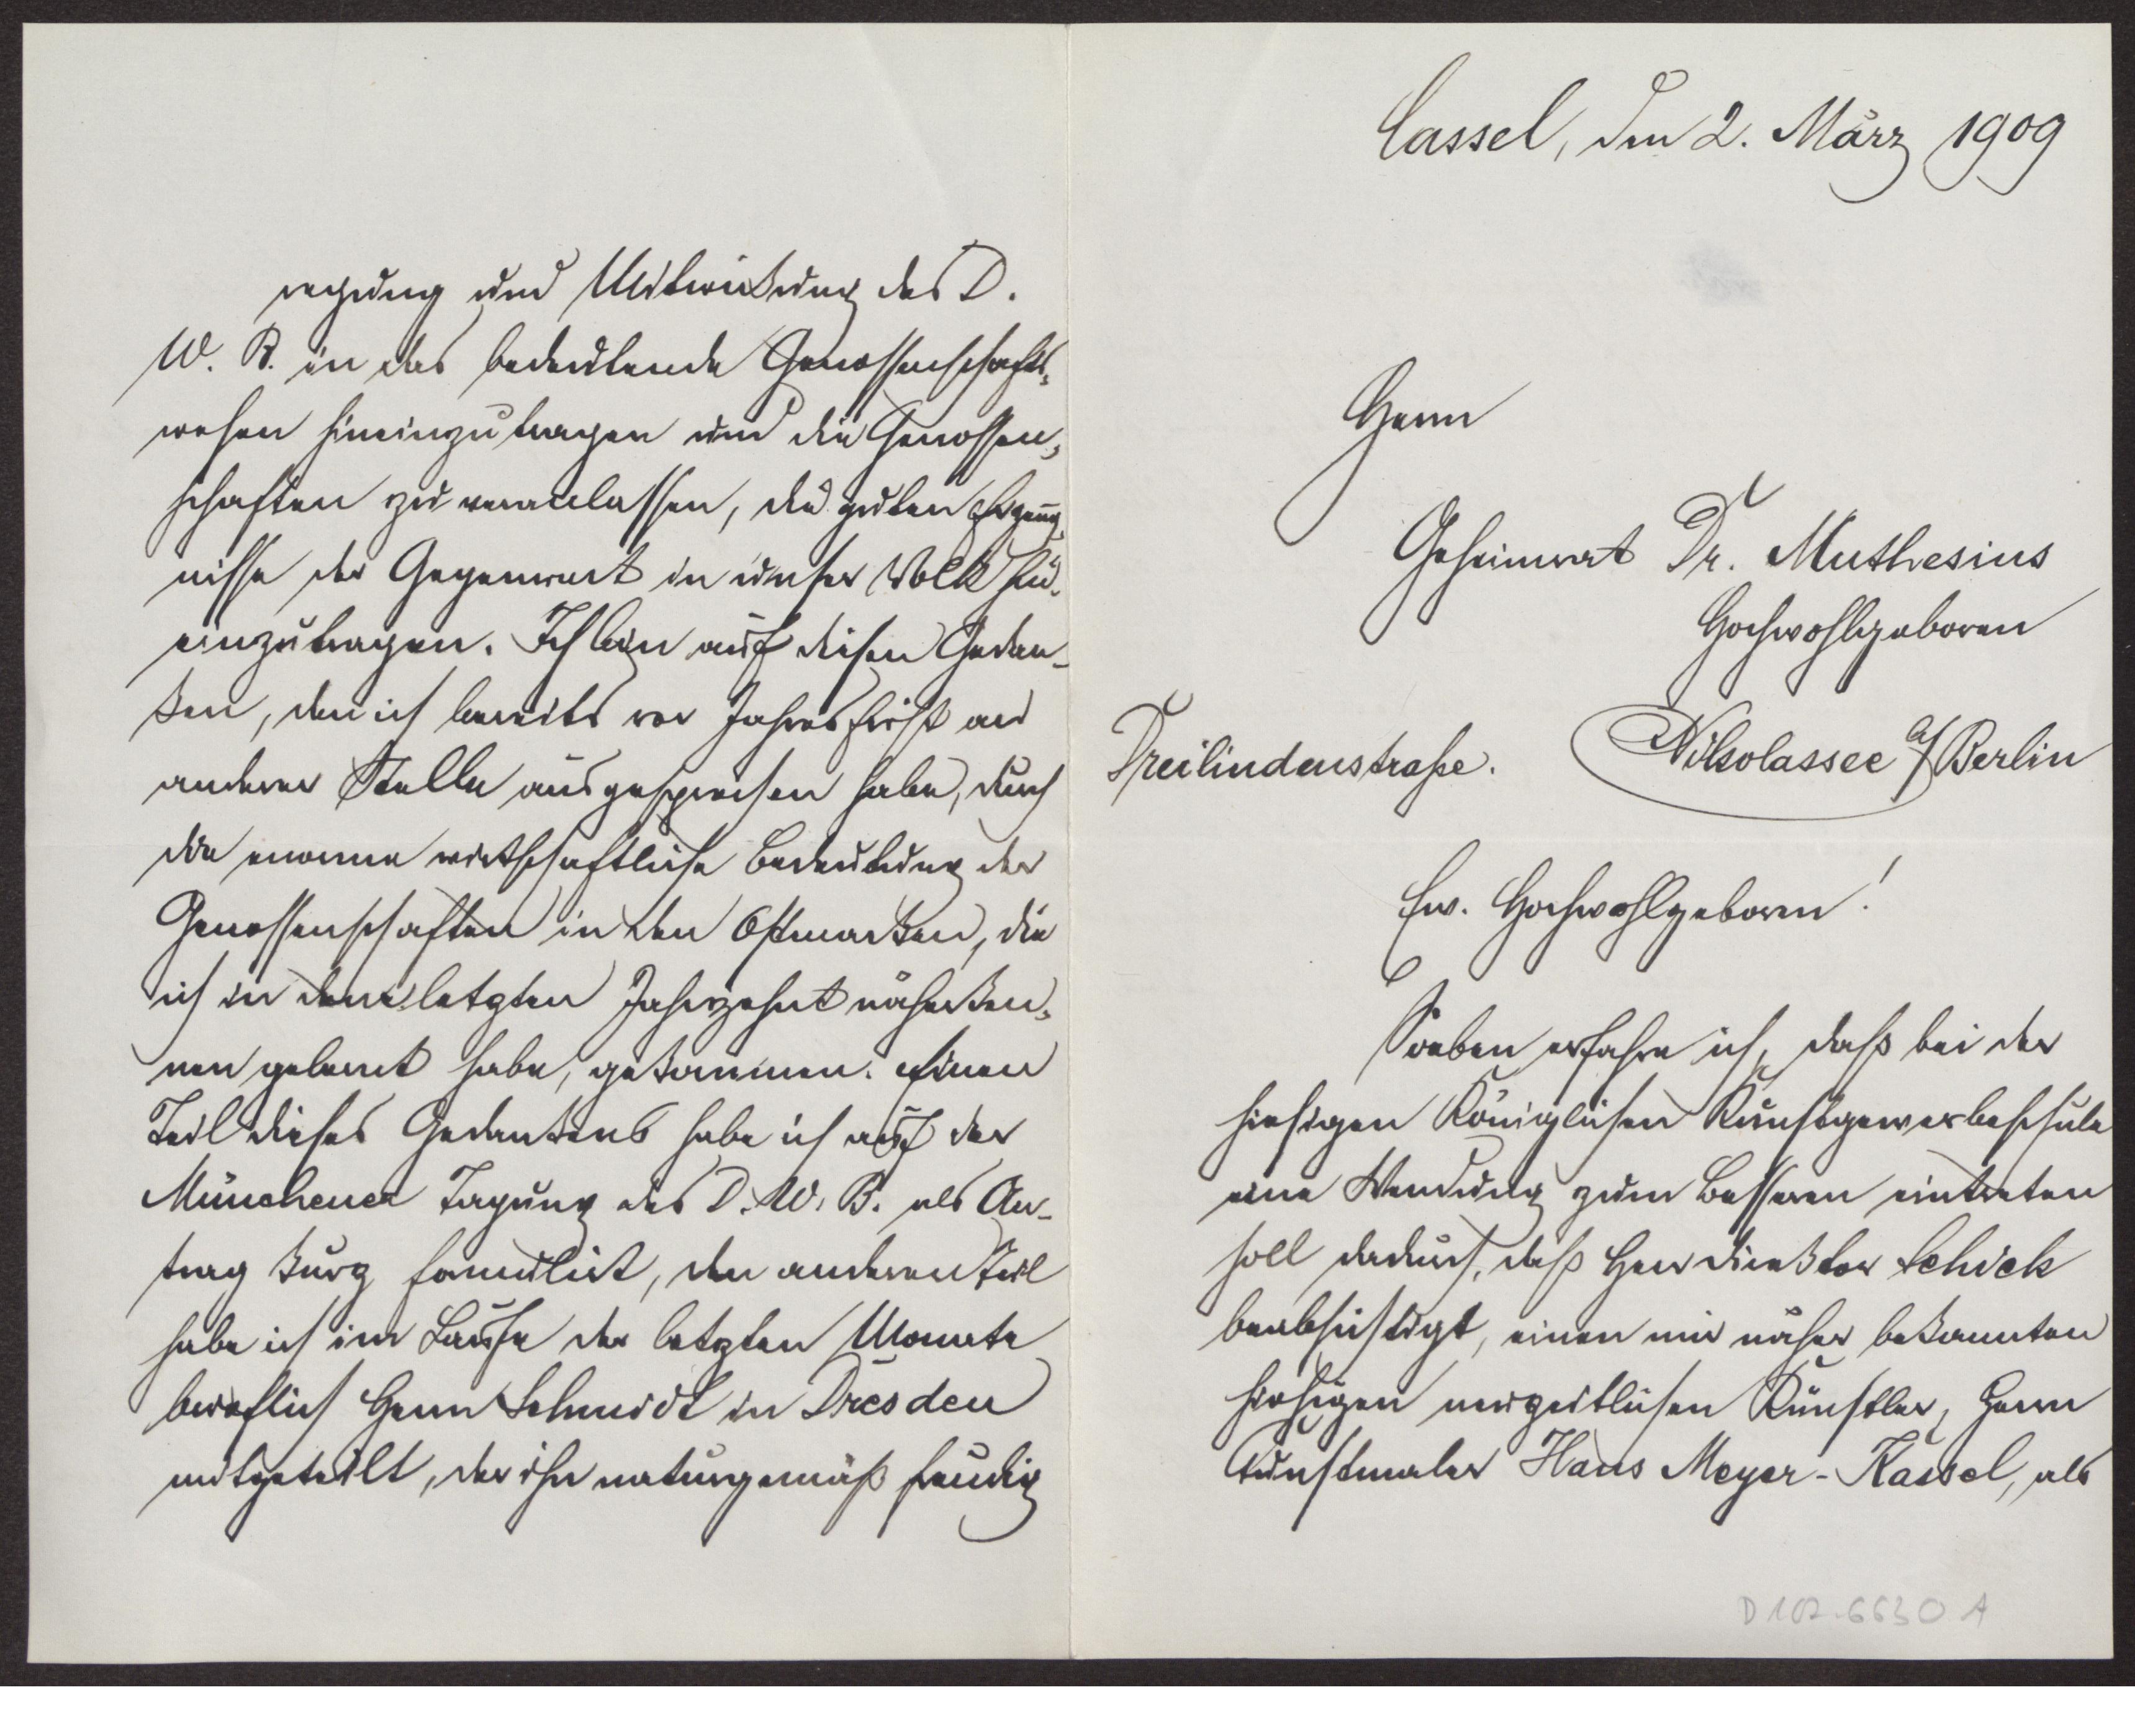 Cassel, den 2. März 1909
Herrn
Geheimrat Dr. Muthesius
Hochwohlgeboren
Dreilindenstraße. Nikolassee a/Berlin
Ew. Hochwohlgeboren!
Soeben erfahre ich, daß bei der
hiesigen Königlichen Kunstgewerbeschule
eine Wendung zum Besseren eintreten
soll dadurch, daß Herr Direktor Schick
beabsichtigt, einen mir näher bekannten
hiesigen neuzeitlichen Künstler, Herrn
Kunstmaler Hans Meyer-Kassel, als
D 102-6630 A
regung und Mitwirkung des D.
W. B. in das bedeutende Genossenschafts-
wesen hineinzutragen und die Genossen-
schaften zu veranlassen, die guten Erzeug-
nisse der Gegenwart in unser Volk hin-
einzutragen. Ich bin auf diesen Gedan-
ken, den ich bereits vor Jahresfrist an
anderer Stelle ausgesprochen habe, durch
die enorme wirtschaftliche Bedeutung der
Genossenschaften in den Ostmarken, die
ich in dem letzten Jahrzehnt näher ken-
nen gelernt habe, gekommen. Einen
Teil dieses Gedankens habe ich auf der
Münchener Tagung des D. W. B. als An-
trag kurz formuliert, den anderen Teil
habe ich im Laufe der letzten Monate
brieflich Herrn Schmidt in Dresden
mitgeteilt, der ihn naturgemäß freudig